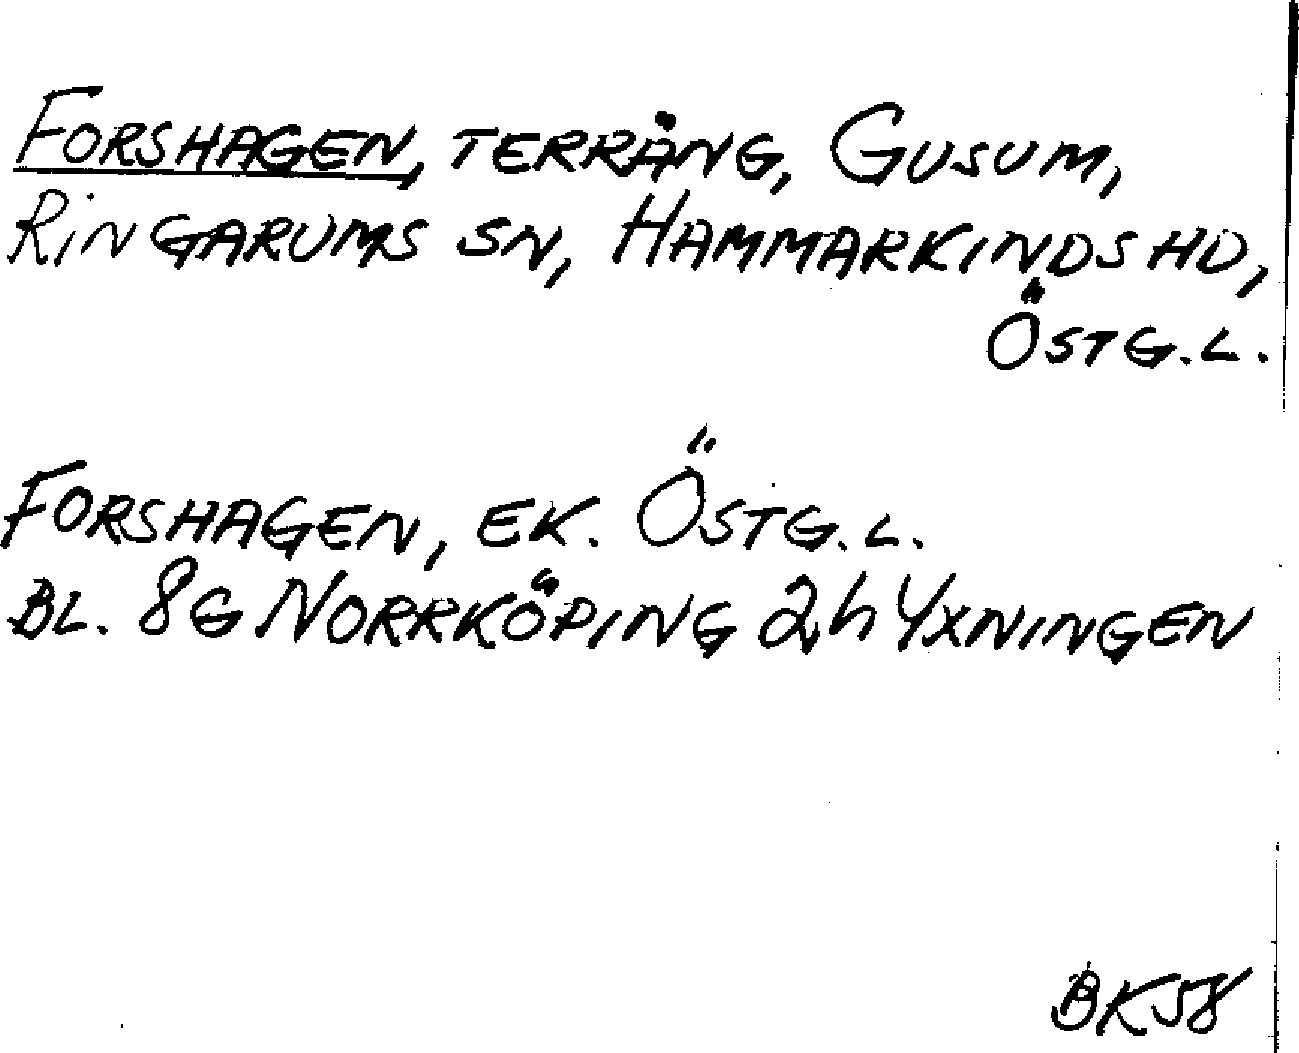 FORSHAGEN, TERRÄNG, GUSUM,
RINGARUMS SN, HAMMARKINDS HD,
ÖSTG.L.
FORSHAGEN, EK. ÖSTG.L.
BL. 8G NORRKÖPING 2h YXNINGEN
BK58